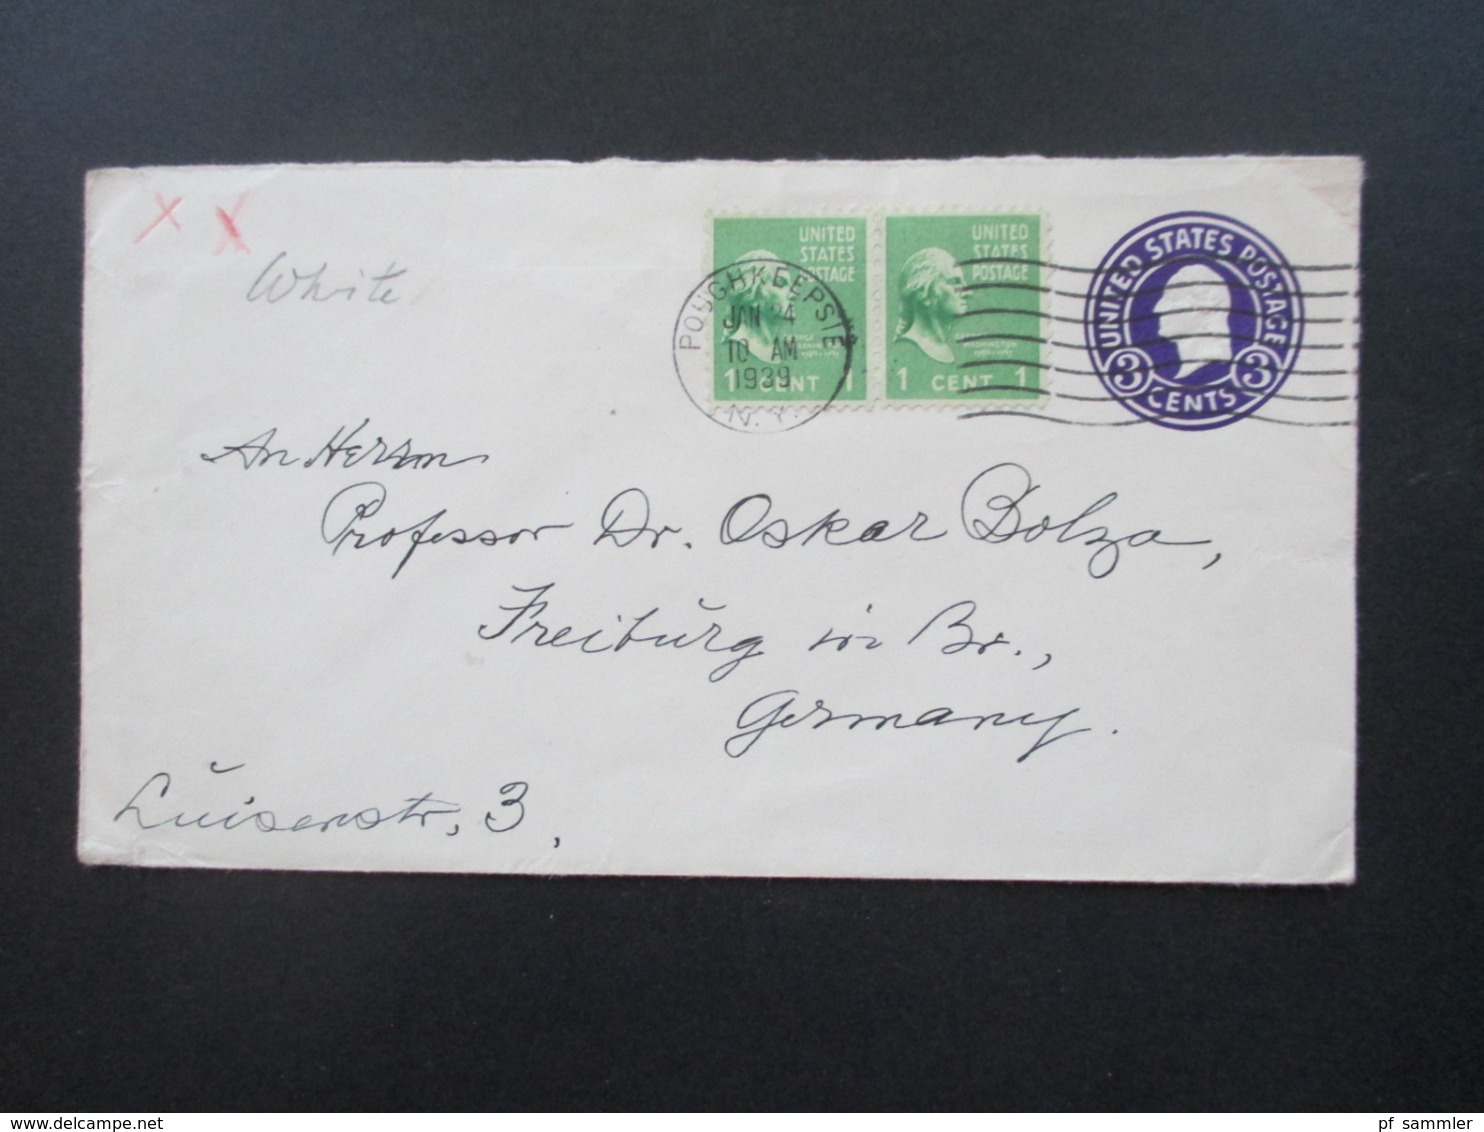 X X
White
UNITED STATES POSTAGE
GEORGE WASHINGTON
1 CENT 1
UNITED STATES POSTAGE
GEORGE WASHINGTON
1 CENT 1
POUGHKEEPSIE
JAN 24
10 AM
1939
N.Y.
UNITED STATES POSTAGE
3 CENTS 3
An Herrn
Professor Dr. Oskar Bolza,
Freibŭrg in Br.,
Germany.
Lŭisenstr. 3,
www.delcampe.net
pf_sammler